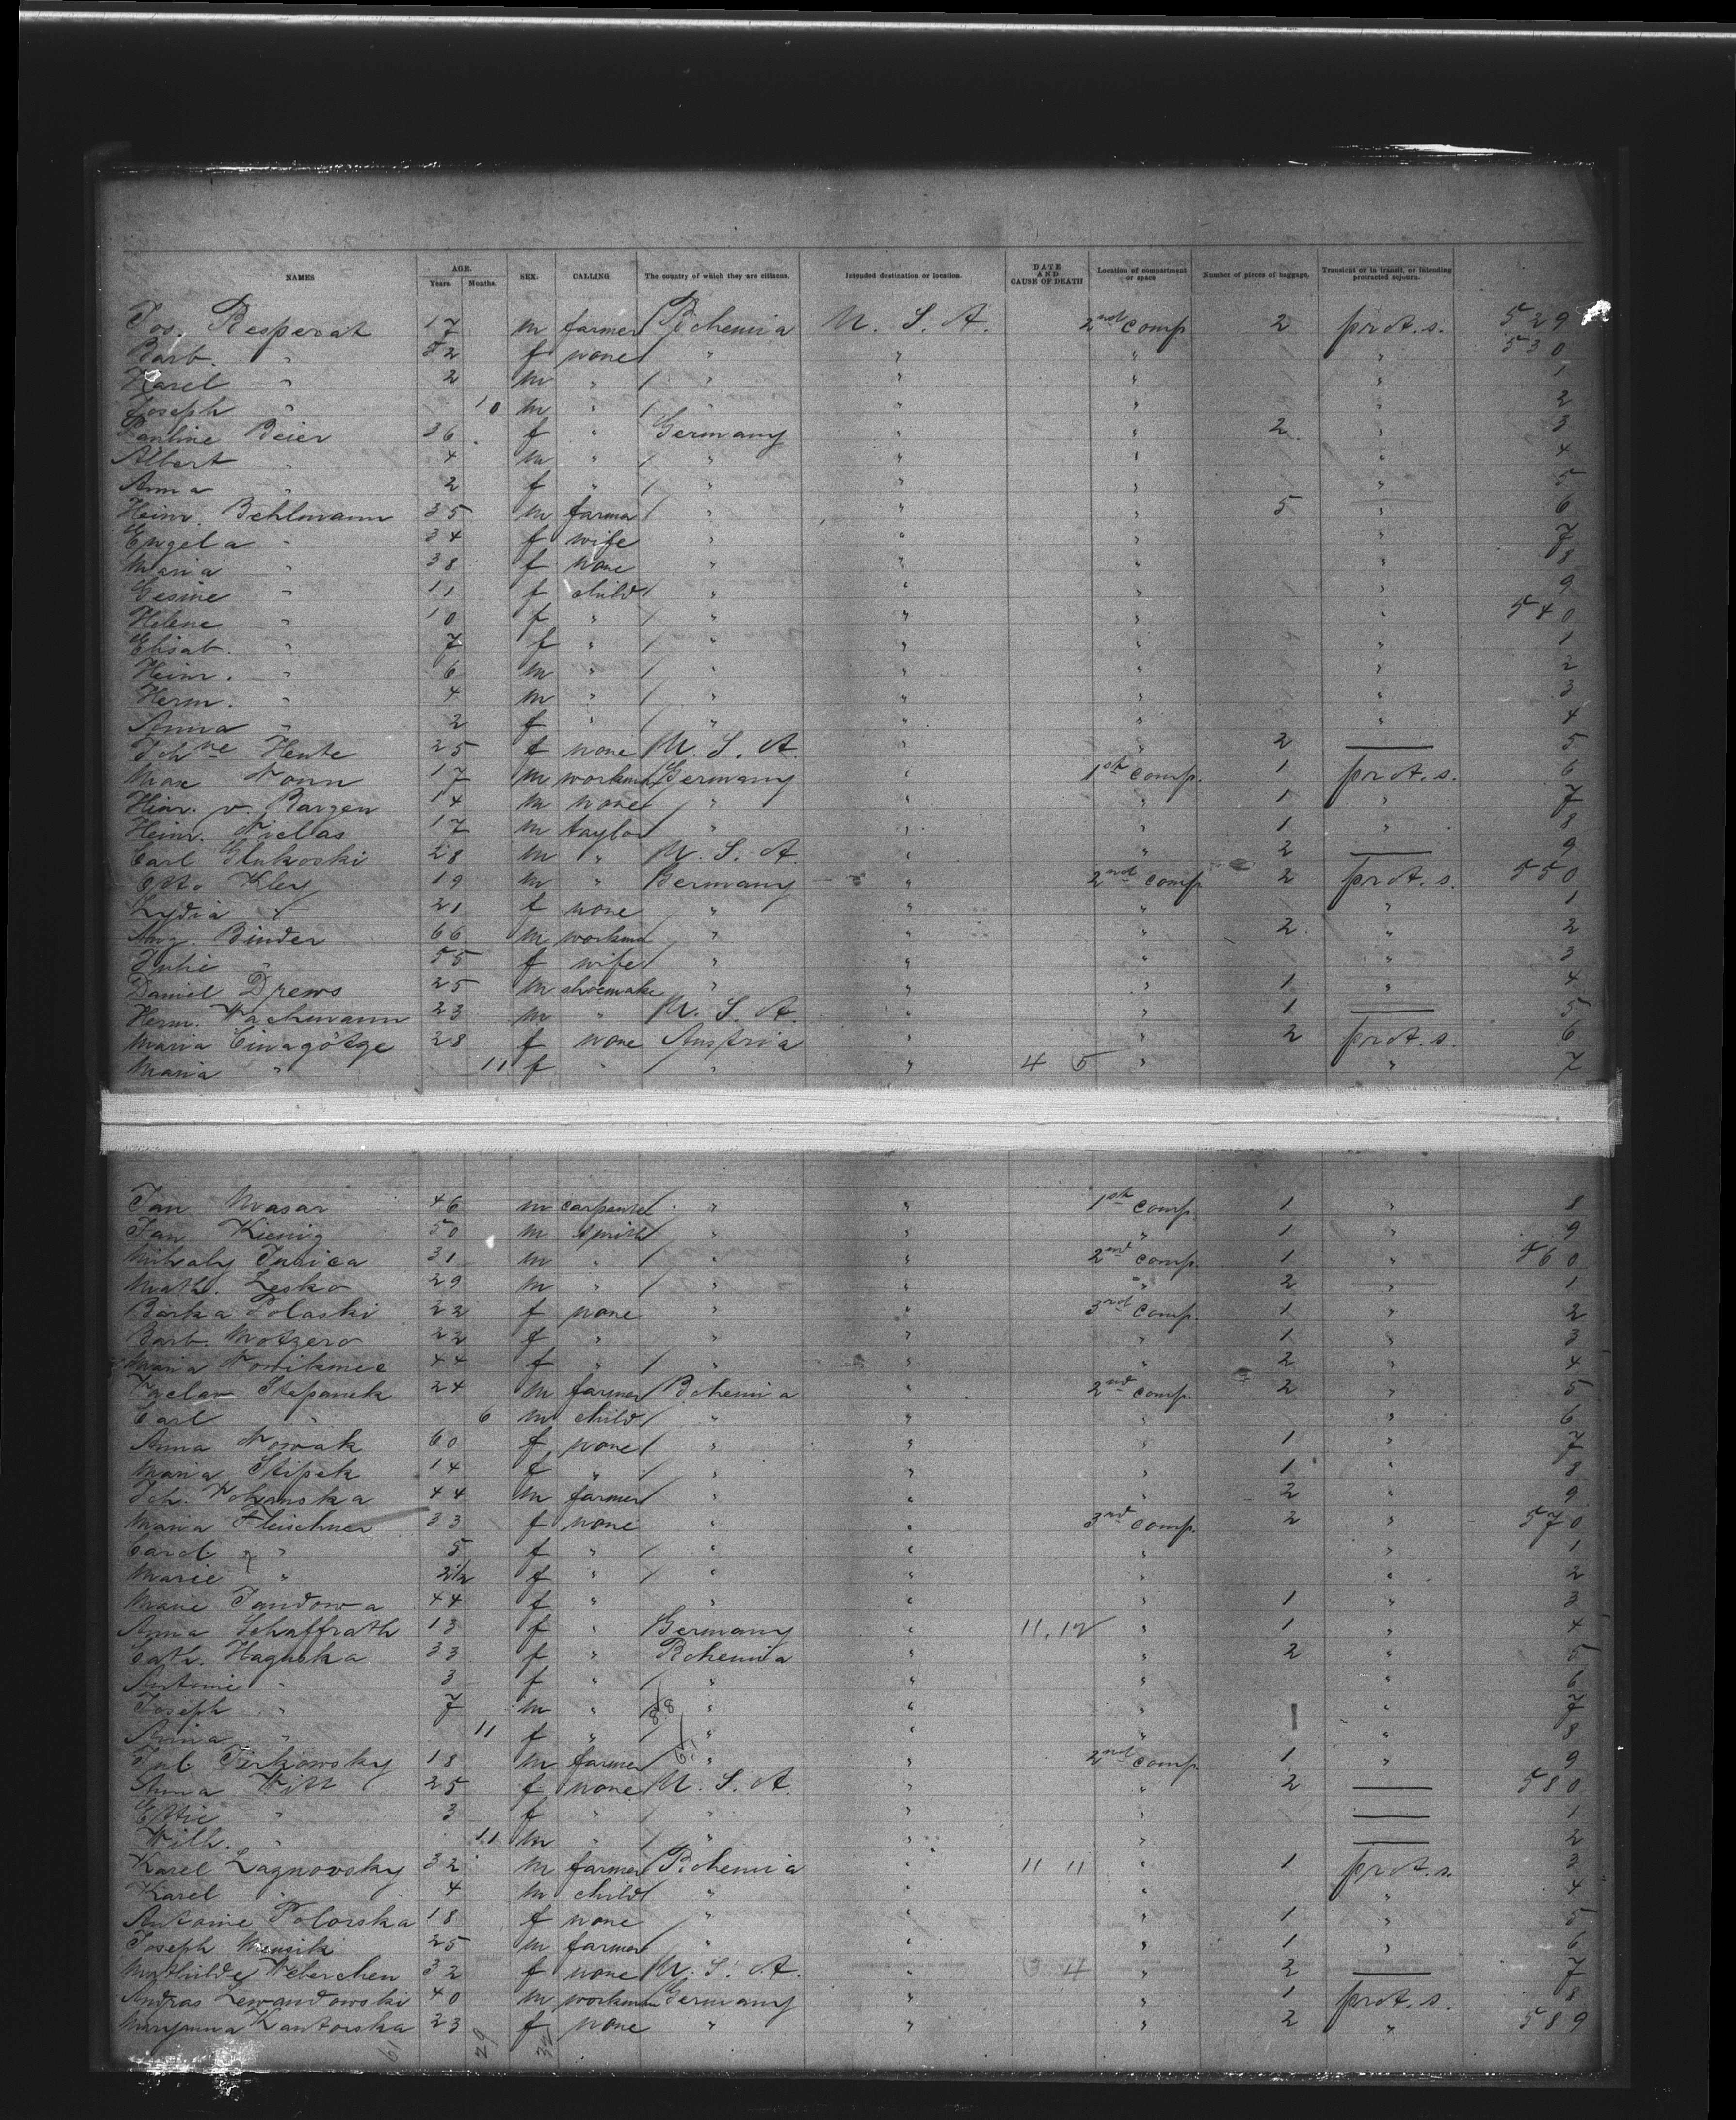 NAMES AGE. Years. Months. SEX. CALLING The country of which they are citizens. Intended destination or location. DATE AND CAUSE OF DEATH Location of compartment or space Number of pieces of baggage. Transient or in transit, or intending protracted sojourn.
Jos. 17 m farmer Bohemia U. S. A. 2nd comp 2 prot. s. 529
Barb. " f none " " " " 530
Karel " 2 m " " " " " 1
Joseph " 10 m " " " " " 2
Pauline Beier 36 f " Germany " " 2 " 3
Albert " 4 m " " " " " 4
Anna " 2 f " " " " " 5
Heinr. Behlmann 35 m farmer " " " 5 " 6
Engela " 34 f wife " " " " 7
Maria " 38 f none " " " " 8
Gesine " 11 f child " " " " 9
Helene " 10 f " " " " " 540
Elisab. " 7 f " " " " " 1
Heinr. " 6 m " " " " " 2
Herm. " 4 m " " " " " 3
Anna " 2 f " " " " " 4
Johne Hente 25 f none U. S. A. " " 2 — 5
Max Nonn 17 m workman Germany " 1st comp. 1 prot. s. 6
Heinr. v. Bargen 14 m none " " " 1 " 7
Heinr. Niclas 17 m taylor " " " 1 " 8
Carl Glukoski 28 m " U. S. A. " " 2 — 9
Otto Kley 19 m " Germany " 2nd comp 2 prot. s. 550
Lydia " 21 f none " " " " 1
Aug. Binder 66 m workman " " " 2 " 2
Julie " 55 f wife " " " " 3
Daniel Drews 25 m shoemake " " " 1 " 4
Herm. Wachmann 23 m " U. S. A. " " 1 — 5
Maria 28 f none Austria " " 2 prot. s. 6
Maria " 11 f " " " 4 5 " " 7
Jan Masar 46 m carpenter " " 1st comp. 1 " 8
Jan Kienig 50 m smith " " " 1 " 9
Mihaly 31 m " " " 2nd comp. 1 " 560
Math. Lesko 29 m " " " " 2 " 1
Barka Polaski 22 f none " " 3rd comp. 1 " 2
Barb. Motzero 22 f " " " " 1 " 3
Maria 44 f " " " " 2 " 4
Vaclav Stepanek 24 m farmer Bohemia " 2nd comp. 2 " 5
Carl " 6 m child " " " " 6
Anna Nowak 60 f none " " " 1 " 7
Maria Stipek 14 f " " " " 1 " 8
Joh. 44 m farmer " " " 2 " 9
Maria Fleischner 33 f none " " 3rd comp. 2 " 570
Carol " 5 f " " " " " 1
Marie " 2½ f " " " " " 2
Marie Jandowa 44 f " " " " 1 " 3
Anna Schaffrath 13 f " Germany " 11,12 " 1 " 4
Cath. Haguska 33 f " Bohemia " " 2 " 5
Antonie " 3 f " " " " " 6
Joseph " 7 m " " " " " 7
Anna " 11 f " " " " " 8
Jul. Tirkowsky 18 m farmer " " 2nd comp 1 " 9
Anna Witt 25 f none U. S. A. " " 2 — 580
Ettie " 3 f " " " " — 1
Wilh. " 11 m " " " " — 2
Karel Lagnovsky 32 m farmer Bohemia " 11 11 " 1 prot. s. 3
Karel " 4 m child " " " " 4
Antonie Polorska 18 f none " " " 1 " 5
Joseph Mensik 25 m farmer " " " 1 " 6
Mathilde Weberchen 32 f none U. S. A. " " 2 — 7
Andras Lewandowski 40 m workman Germany " " 1 prot. s. 8
Maryanna Kantorska 23 f none " " " 2 " 589
61 29 32